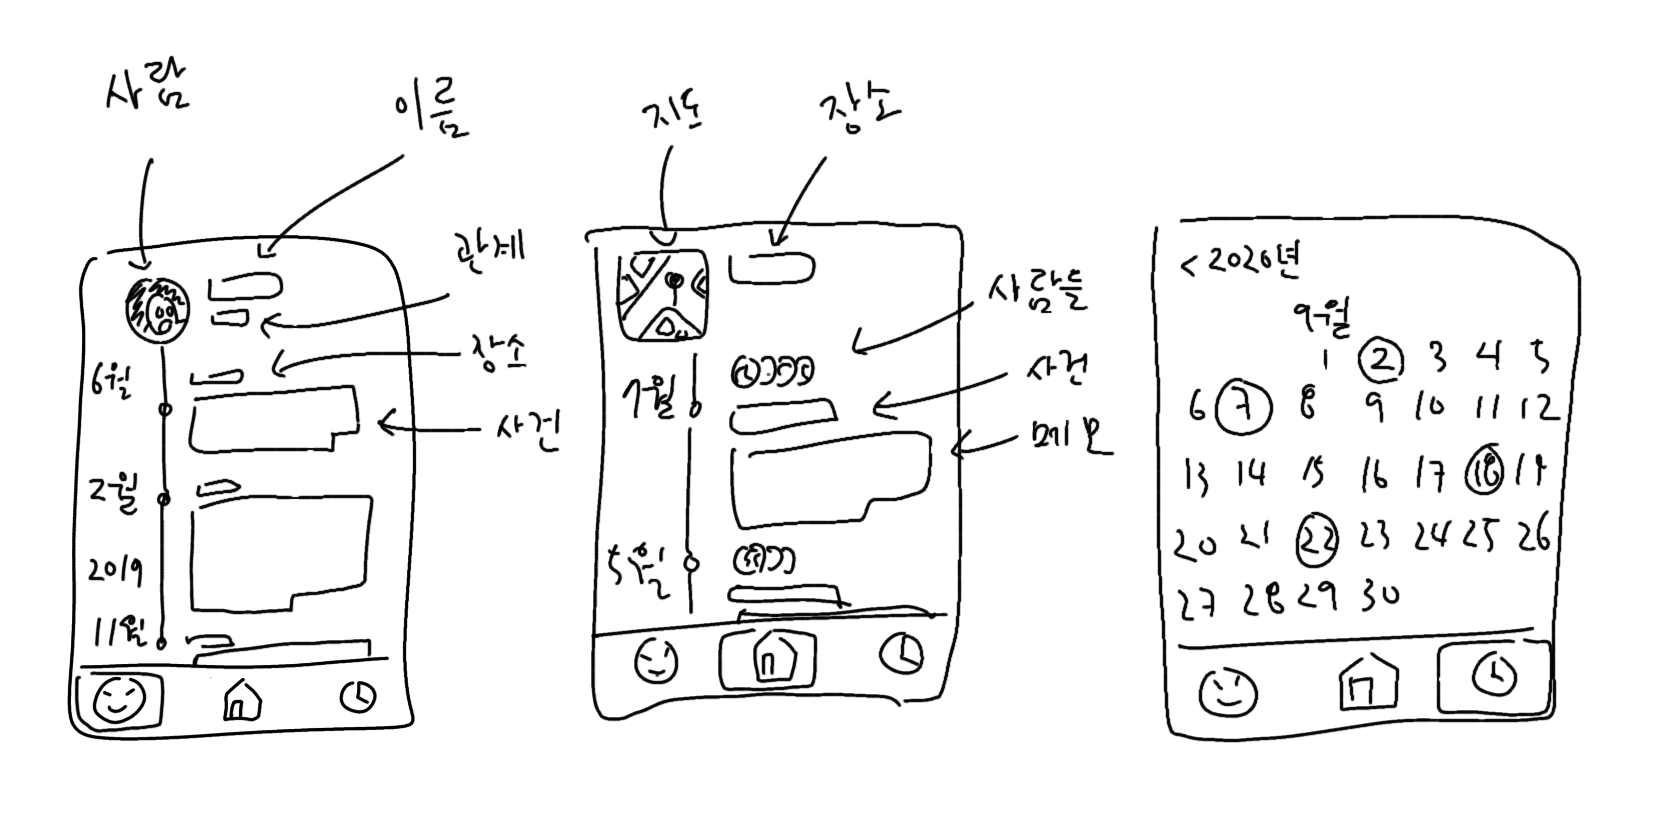 사람
이름
관계
장소
사건
6월
2월
2019
11월
지도
장소
사람들
사건
메모
7월
5월
< 2020년
9월
1 2 3 4 5
6 7 8 9 10 11 12
13 14 15 16 17 18 19
20 21 22 23 24 25 26
27 28 29 30